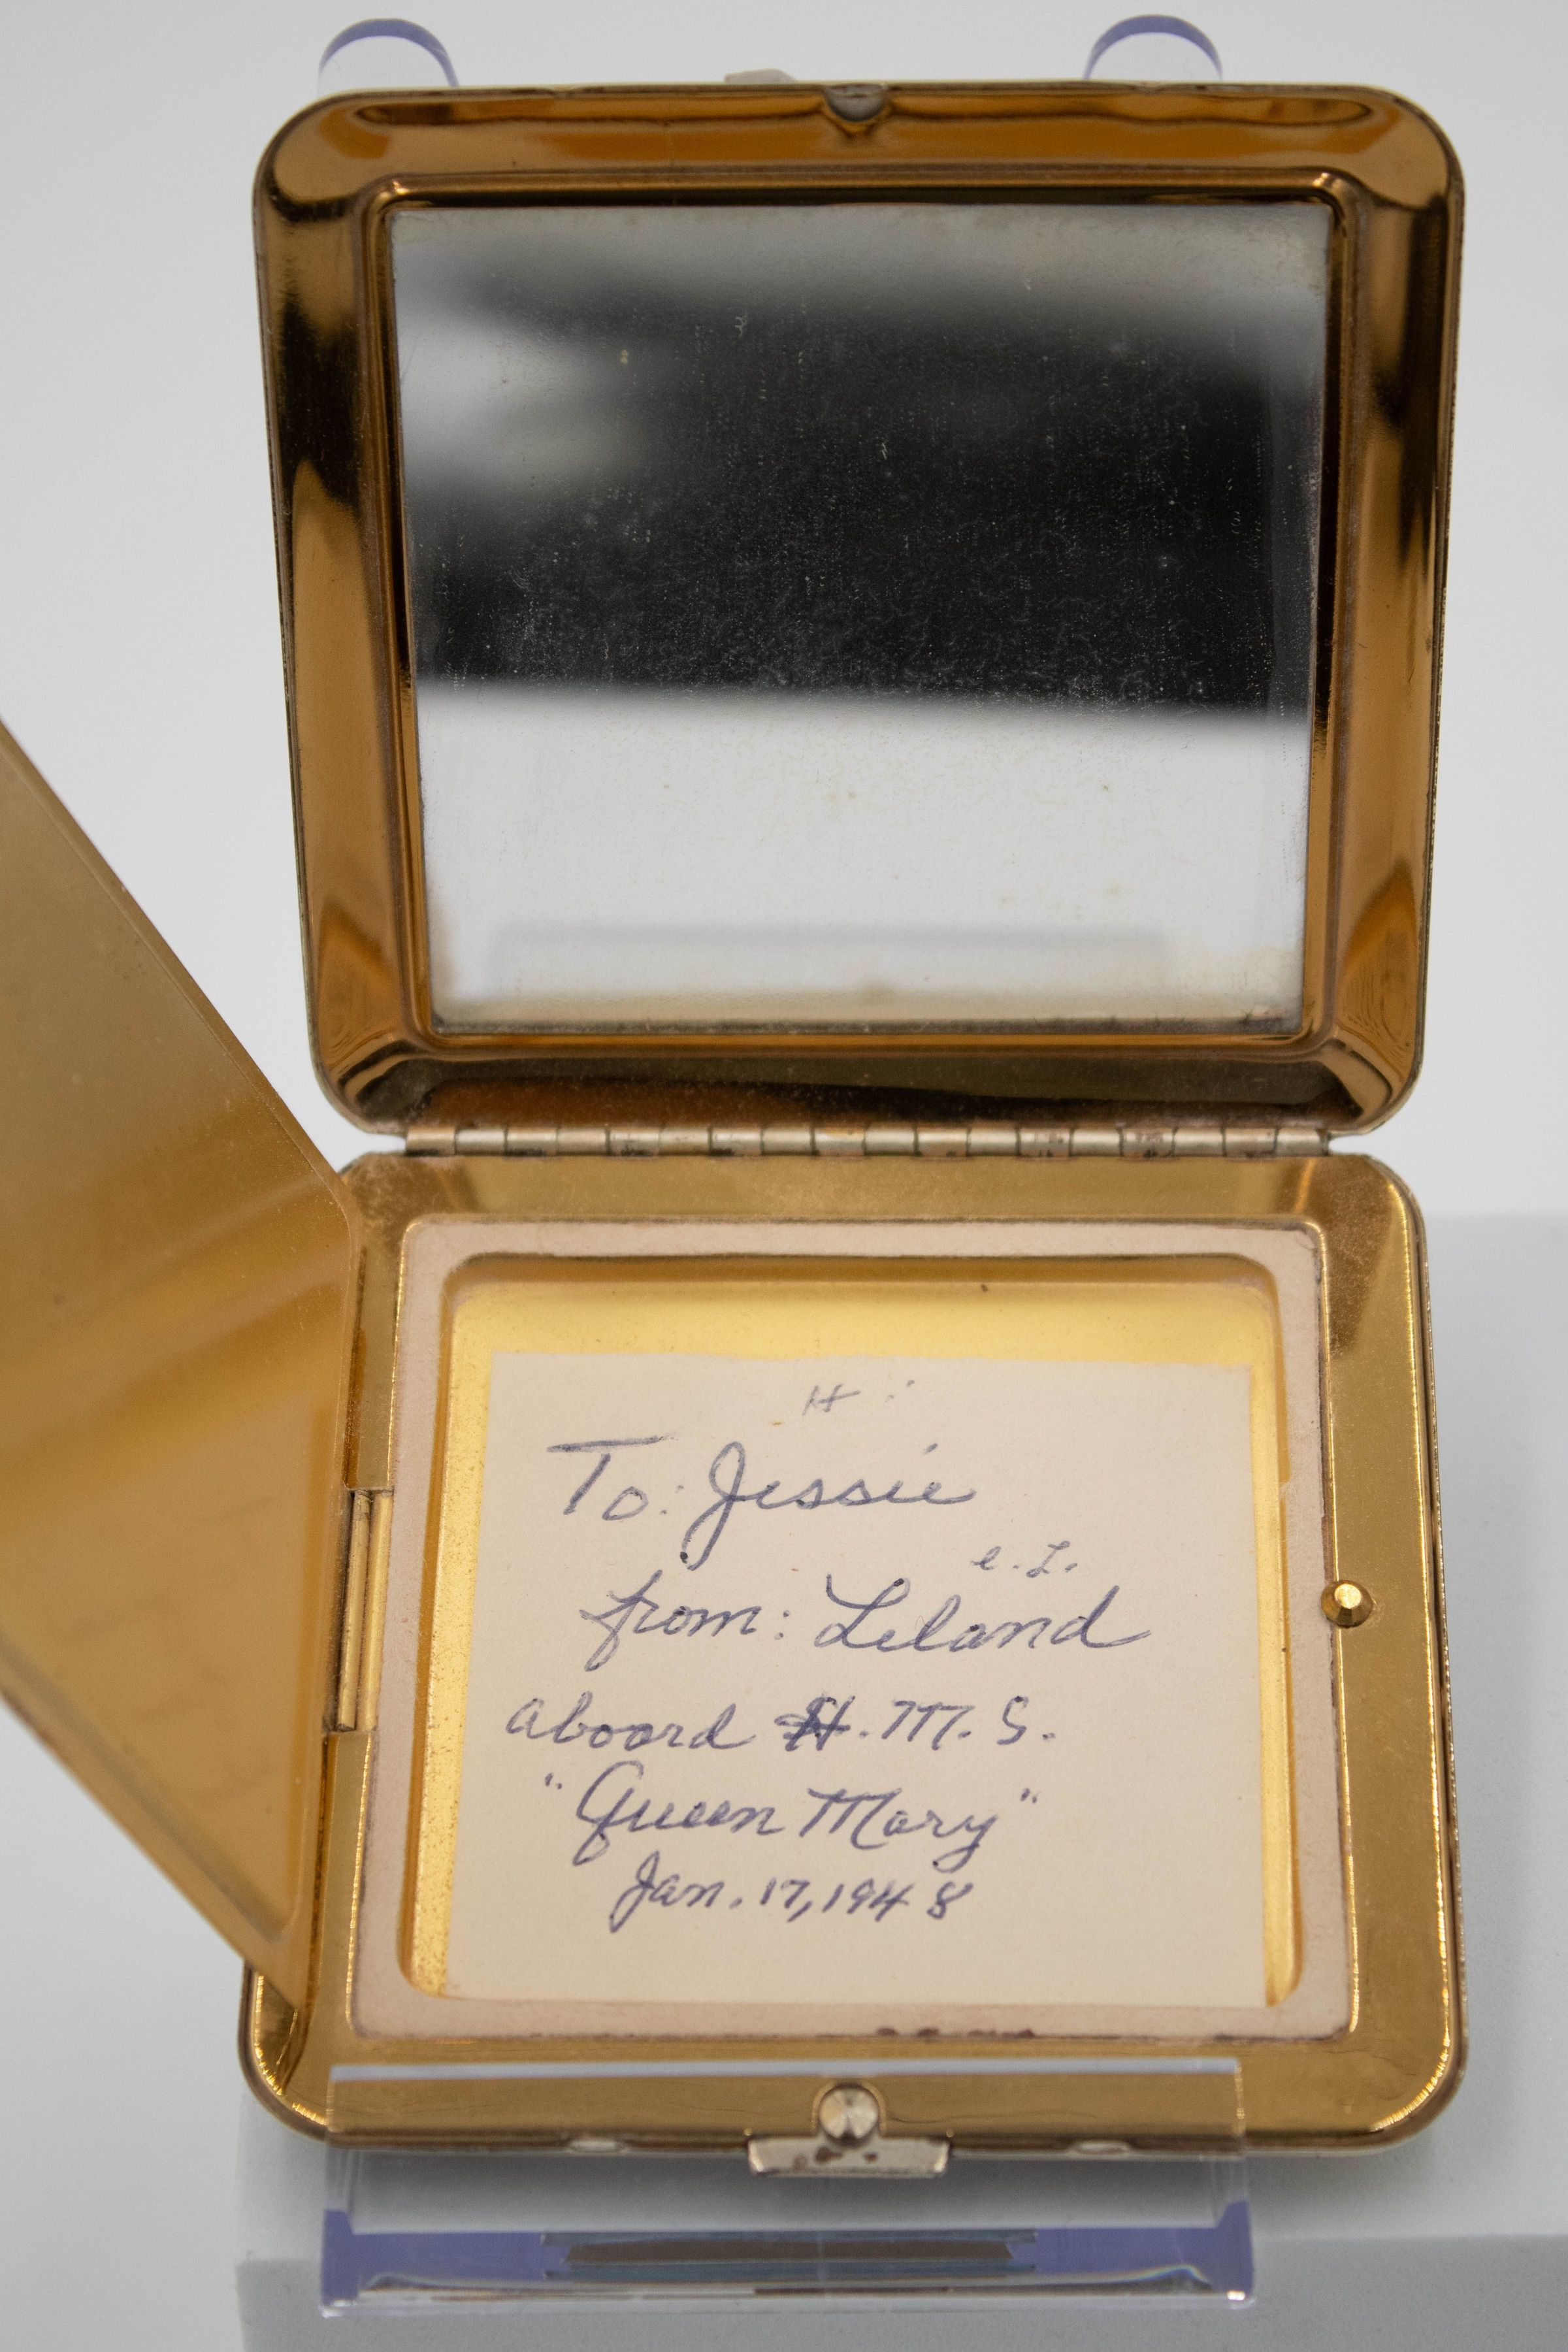 H
To: Jessie
e. L.
from: Leland
aboard H.M.S.
"Queen Mary"
Jan. 17, 1948